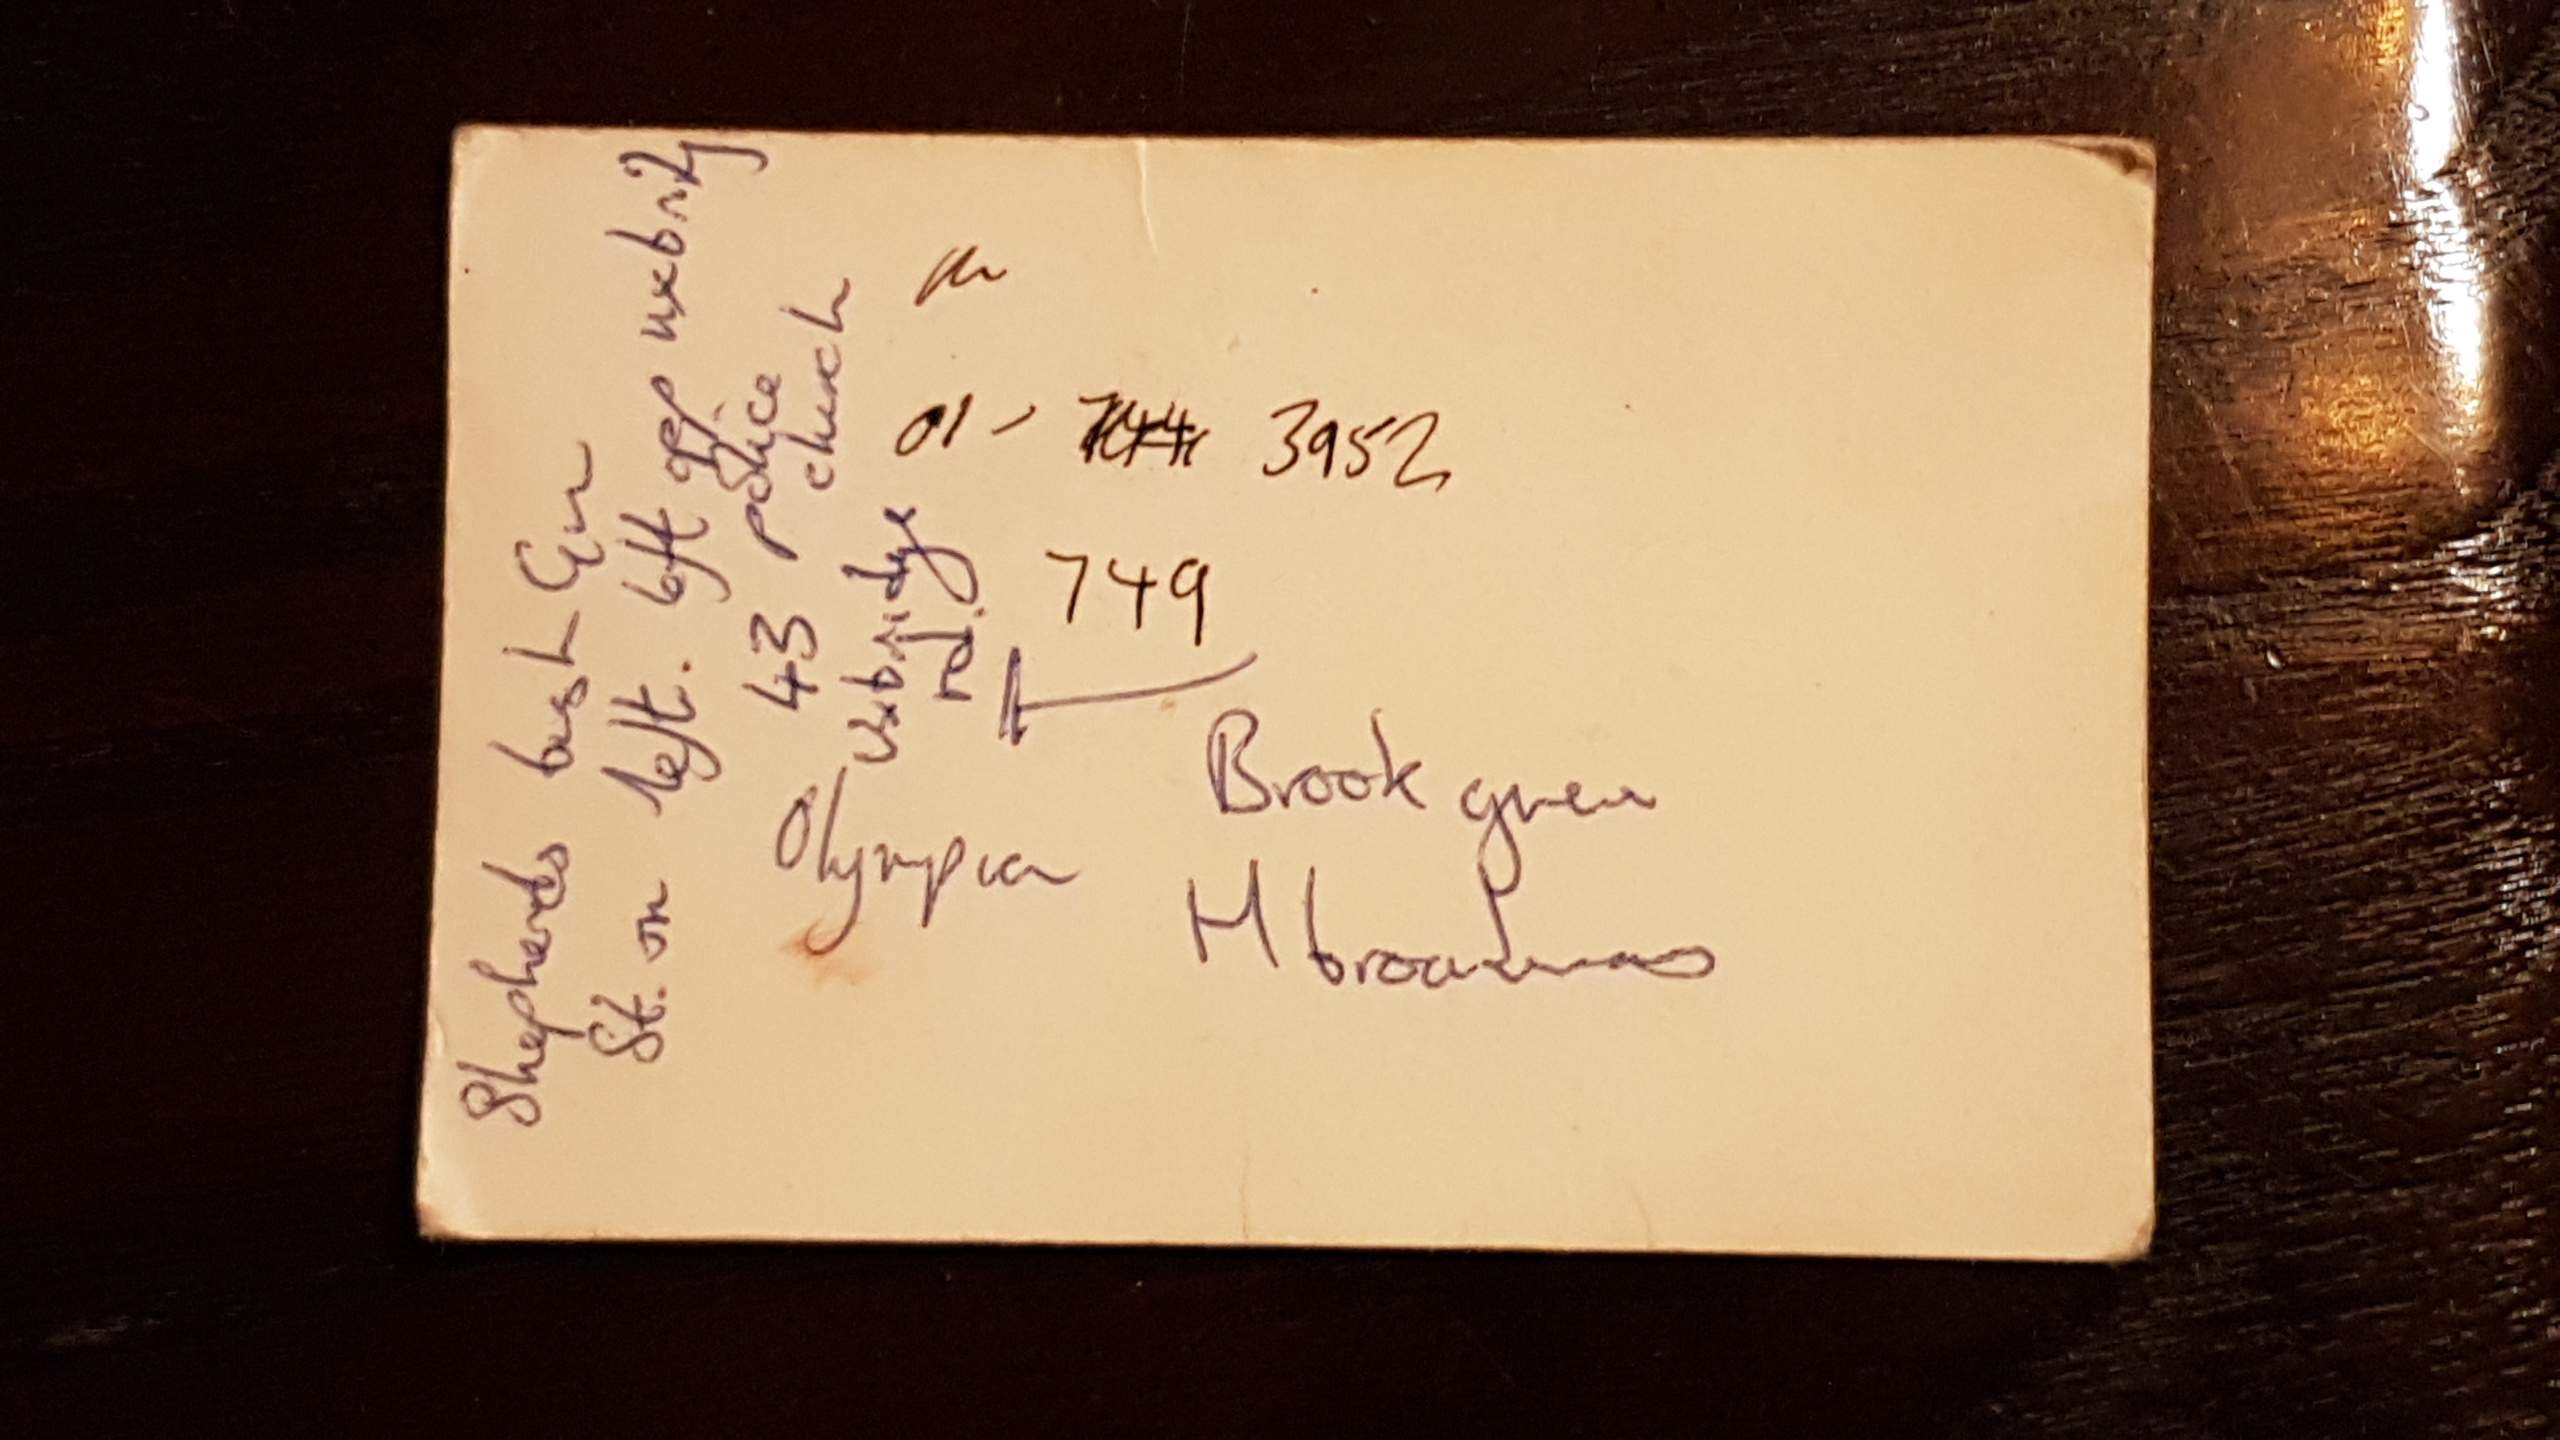 Shepherds bush Grn
St. on left. left opp uxbridg
43 police
church
Uxbridge
rd.
01 - 3952
749
Olympia
Brook green